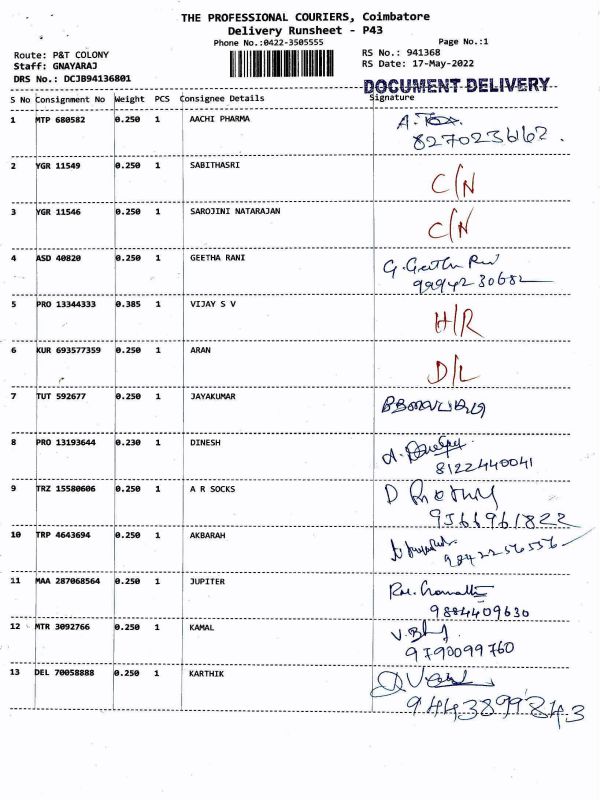 THE PROFESSIONAL COURIERS, Coimbatore
Delivery Runsheet - P43
Phone No.:0422-3505555 Page No.:1
Route: P&T COLONY RS No.: 941368
Staff: GNAYARAJ RS Date: 17-May-2022
DRS No.: DCJB94136801
DOCUMENT DELIVERY
S No Consignment No Weight PCS Consignee Details Signature
1 MTP 680582 0.250 1 AACHI PHARMA
8270236162.
2 YGR 11549 0.250 1 SABITHASRI C/N
3 YGR 11546 0.250 1 SAROJINI NATARAJAN C/N
4 ASD 40820 0.250 1 GEETHA RANI G. Geetha Rani
9994230682
5 PRO 13344333 0.385 1 VIJAY S V H/R
6 KUR 693577359 0.250 1 ARAN D/L
7 TUT 592677 0.250 1 JAYAKUMAR
8 PRO 13193644 0.230 1 DINESH
8122440041
9 TRZ 15580606 0.250 1 A R SOCKS
9566961822
10 TRP 4643694 0.250 1 AKBARAH
9842256556
11 MAA 287068564 0.250 1 JUPITER
9884409630
12 MTR 3092766 0.250 1 KAMAL
9790099760
13 DEL 70058888 0.250 1 KARTHIK
9443899843